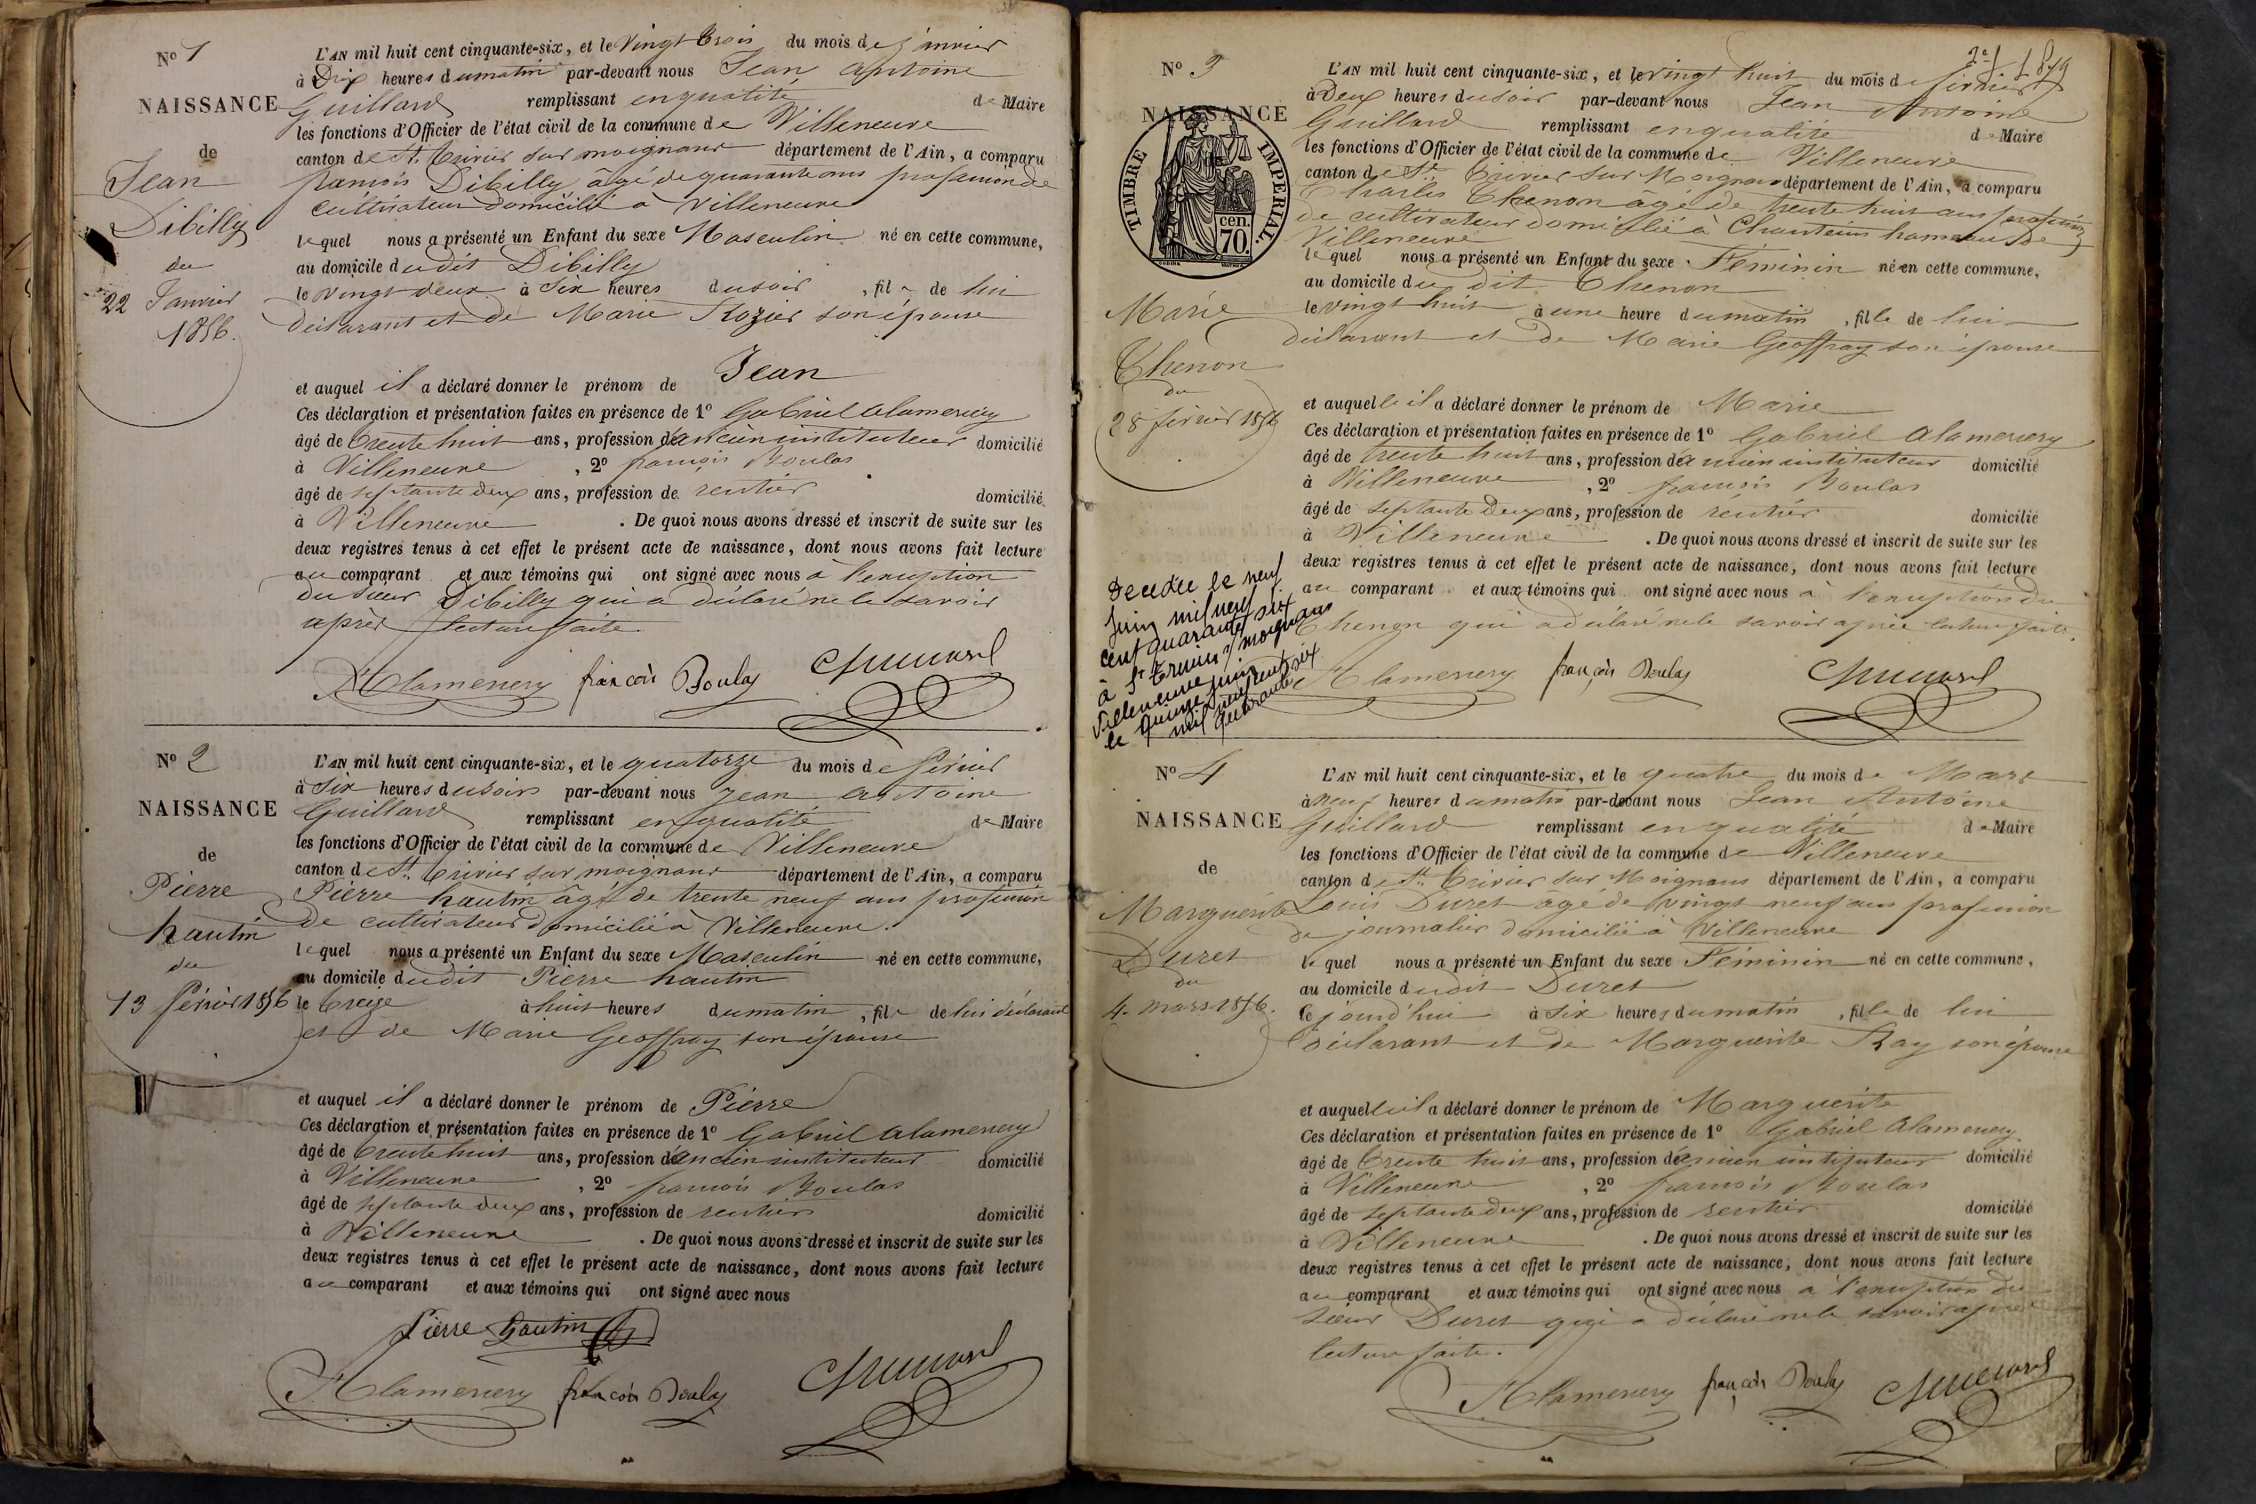 Nº 1
NAISSANCE
de
Jean
Dibilly
du
22 Janvier
1856.
L'AN mil huit cent cinquante-six, et le vingt trois du mois de janvier
à Dix heures du matin par-devant nous Jean antoine
Guillard remplissant en qualité de Maire
les fonctions d'Officier de l'état civil de la commune de Villeneuve
canton de St. trivier sur moignans département de l'Ain, a comparu
françois Dibilly âgé de quarante ans profession de
cultivateur domicilié à Villeneuve
lequel nous a présenté un Enfant du sexe Masculin né en cette commune,
au domicile dudit Dibilly
le vingt deux à six heures du soir, fils de lui
déclarant et de Marie Rozier son épouse
et auquel il a déclaré donner le prénom de Jean
Ces déclaration et présentation faites en présence de 1º Gabriel alamercery
âgé de trente huit ans, profession d'ancien instituteur domicilié
à Villeneuve, 2º françois Boulas
âgé de septante deux ans, profession de rentier domicilié
à Villeneuve. De quoi nous avons dressé et inscrit de suite sur les
deux registres tenus à cet effet le présent acte de naissance, dont nous avons fait lecture
au comparant et aux témoins qui ont signé avec nous à l'exception
du sieur Dibilly qui a déclaré ne le savoir
après lecture faite.
Alamercery françois Boulas Guillard
Nº 2
NAISSANCE
de
Pierre
hautin
du
13 février 1856
L'AN mil huit cent cinquante-six, et le quatorze du mois de février
à six heures du soir par-devant nous Jean antoine
Guillard remplissant en qualité de Maire
les fonctions d'Officier de l'état civil de la commune de Villeneuve
canton de St. trivier sur moignans département de l'Ain, a comparu
Pierre hautin âgé de trente neuf ans profession
de cultivateur domicilié à Villeneuve.
lequel nous a présenté un Enfant du sexe Masculin né en cette commune,
au domicile dudit Pierre hautin
le treize à huit heures du matin, fils de lui déclarant
et de Marie Geoffray son épouse
et auquel il a déclaré donner le prénom de Pierre
Ces déclaration et présentation faites en présence de 1º Gabriel alamercery
âgé de trente huit ans, profession d'ancien instituteur domicilié
à Villeneuve, 2º françois Boulas
âgé de septante deux ans, profession de rentier domicilié
à Villeneuve. De quoi nous avons dressé et inscrit de suite sur les
deux registres tenus à cet effet le présent acte de naissance, dont nous avons fait lecture
au comparant et aux témoins qui ont signé avec nous
Pierre hautin
Alamercery françois Boulas Guillard
Nº 3
NAISSANCE
TIMBRE IMPERIAL.
cen.
70.
Marie
Thenon
du
28 février 1856
Decédée le neuf
juin mil neuf
cent quarante six
à St trivier s/ moignans
Villeneuve
le quinze juin
mil neuf cent
quarante six
L'AN mil huit cent cinquante-six, et le vingt huit du mois de février
à Deux heures du soir par-devant nous Jean Antoine
Guillard remplissant en qualité de Maire
les fonctions d'Officier de l'état civil de la commune de Villeneuve
canton de St. trivier sur Moignans département de l'Ain, a comparu
Charles Thenon âgé de trente huit ans profession
de cultivateur domicilié à Chanteins hameau de
Villeneuve
lequel nous a présenté un Enfant du sexe Féminin né en cette commune,
au domicile du dit Thenon
le vingt huit à une heure du matin, fille de lui
déclarant et de Marie Geoffray son épouse
et auquelle il a déclaré donner le prénom de Marie
Ces déclaration et présentation faites en présence de 1º Gabriel alamercery
âgé de trente huit ans, profession d'ancien instituteur domicilié
à Villeneuve, 2º françois Boulas
âgé de septante deux ans, profession de rentier domicilié
à Villeneuve. De quoi nous avons dressé et inscrit de suite sur les
deux registres tenus à cet effet le présent acte de naissance, dont nous avons fait lecture
au comparant et aux témoins qui ont signé avec nous à l'exception du
Thenon qui a déclaré ne le savoir après lecture faite.
Alamercery françois Boulas Guillard
Nº 4
NAISSANCE
de
Marguerite
Duret
du
4 mars 1856.
L'AN mil huit cent cinquante-six, et le quatre du mois de Mars
à neuf heures du matin par-devant nous Jean Antoine
Guillard remplissant en qualité de Maire
les fonctions d'Officier de l'état civil de la commune de Villeneuve
canton de St. trivier sur Moignans département de l'Ain, a comparu
Louis Duret âgé de vingt neuf ans profession
de journalier domicilié à Villeneuve
lequel nous a présenté un Enfant du sexe Féminin né en cette commune,
au domicile dudit Duret
le jourd'hui à six heures du matin, fille de lui
déclarant et de Marguerite Ray son épouse
et auquelle il a déclaré donner le prénom de Marguerite
Ces déclaration et présentation faites en présence de 1º Gabriel Alamercery
âgé de trente huit ans, profession d'ancien instituteur domicilié
à Villeneuve, 2º françois Boulas
âgé de septante deux ans, profession de rentier domicilié
à Villeneuve. De quoi nous avons dressé et inscrit de suite sur les
deux registres tenus à cet effet le présent acte de naissance, dont nous avons fait lecture
au comparant et aux témoins qui ont signé avec nous à l'exception du
sieur Duret qui a déclaré ne le savoir après
lecture faite.
Alamercery françois Boulas Guillard